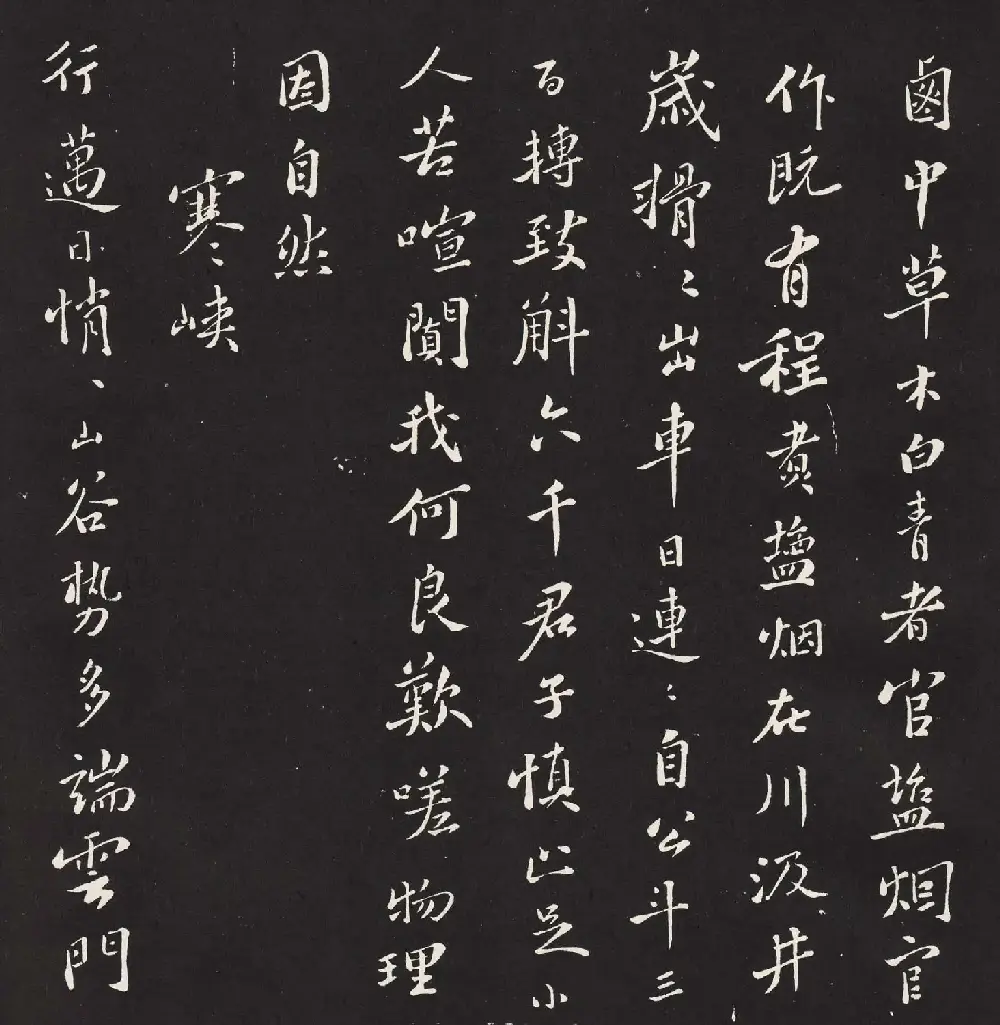 鹵中草木白青者官塩烟官
作既有程煮塩烟在川汲井
歲搰〻出車日連〻自公斗三
百轉致斛六千君子慎止足小
人苦喧闐我何良歎嗟物理
因自然
寒峽
行邁日悄〻山谷勢多端雲門